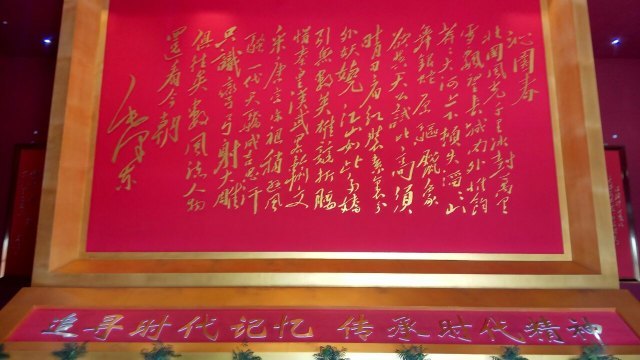 沁园春
北国风光千里冰封万里
雪飘望长城内外惟余
莽莽大河上下顿失滔滔山
舞银蛇原驱臘象
欲与天公试比高须
晴日看红装素裹分
外妖娆 江山如此多娇
引无数英雄竞折腰
惜秦皇汉武略输文
采唐宗宋祖稍逊风
骚一代天骄成吉思汗
只識弯弓射大雕
俱往矣数风流人物
还看今朝
毛泽东
追寻时代记忆 传承时代精神